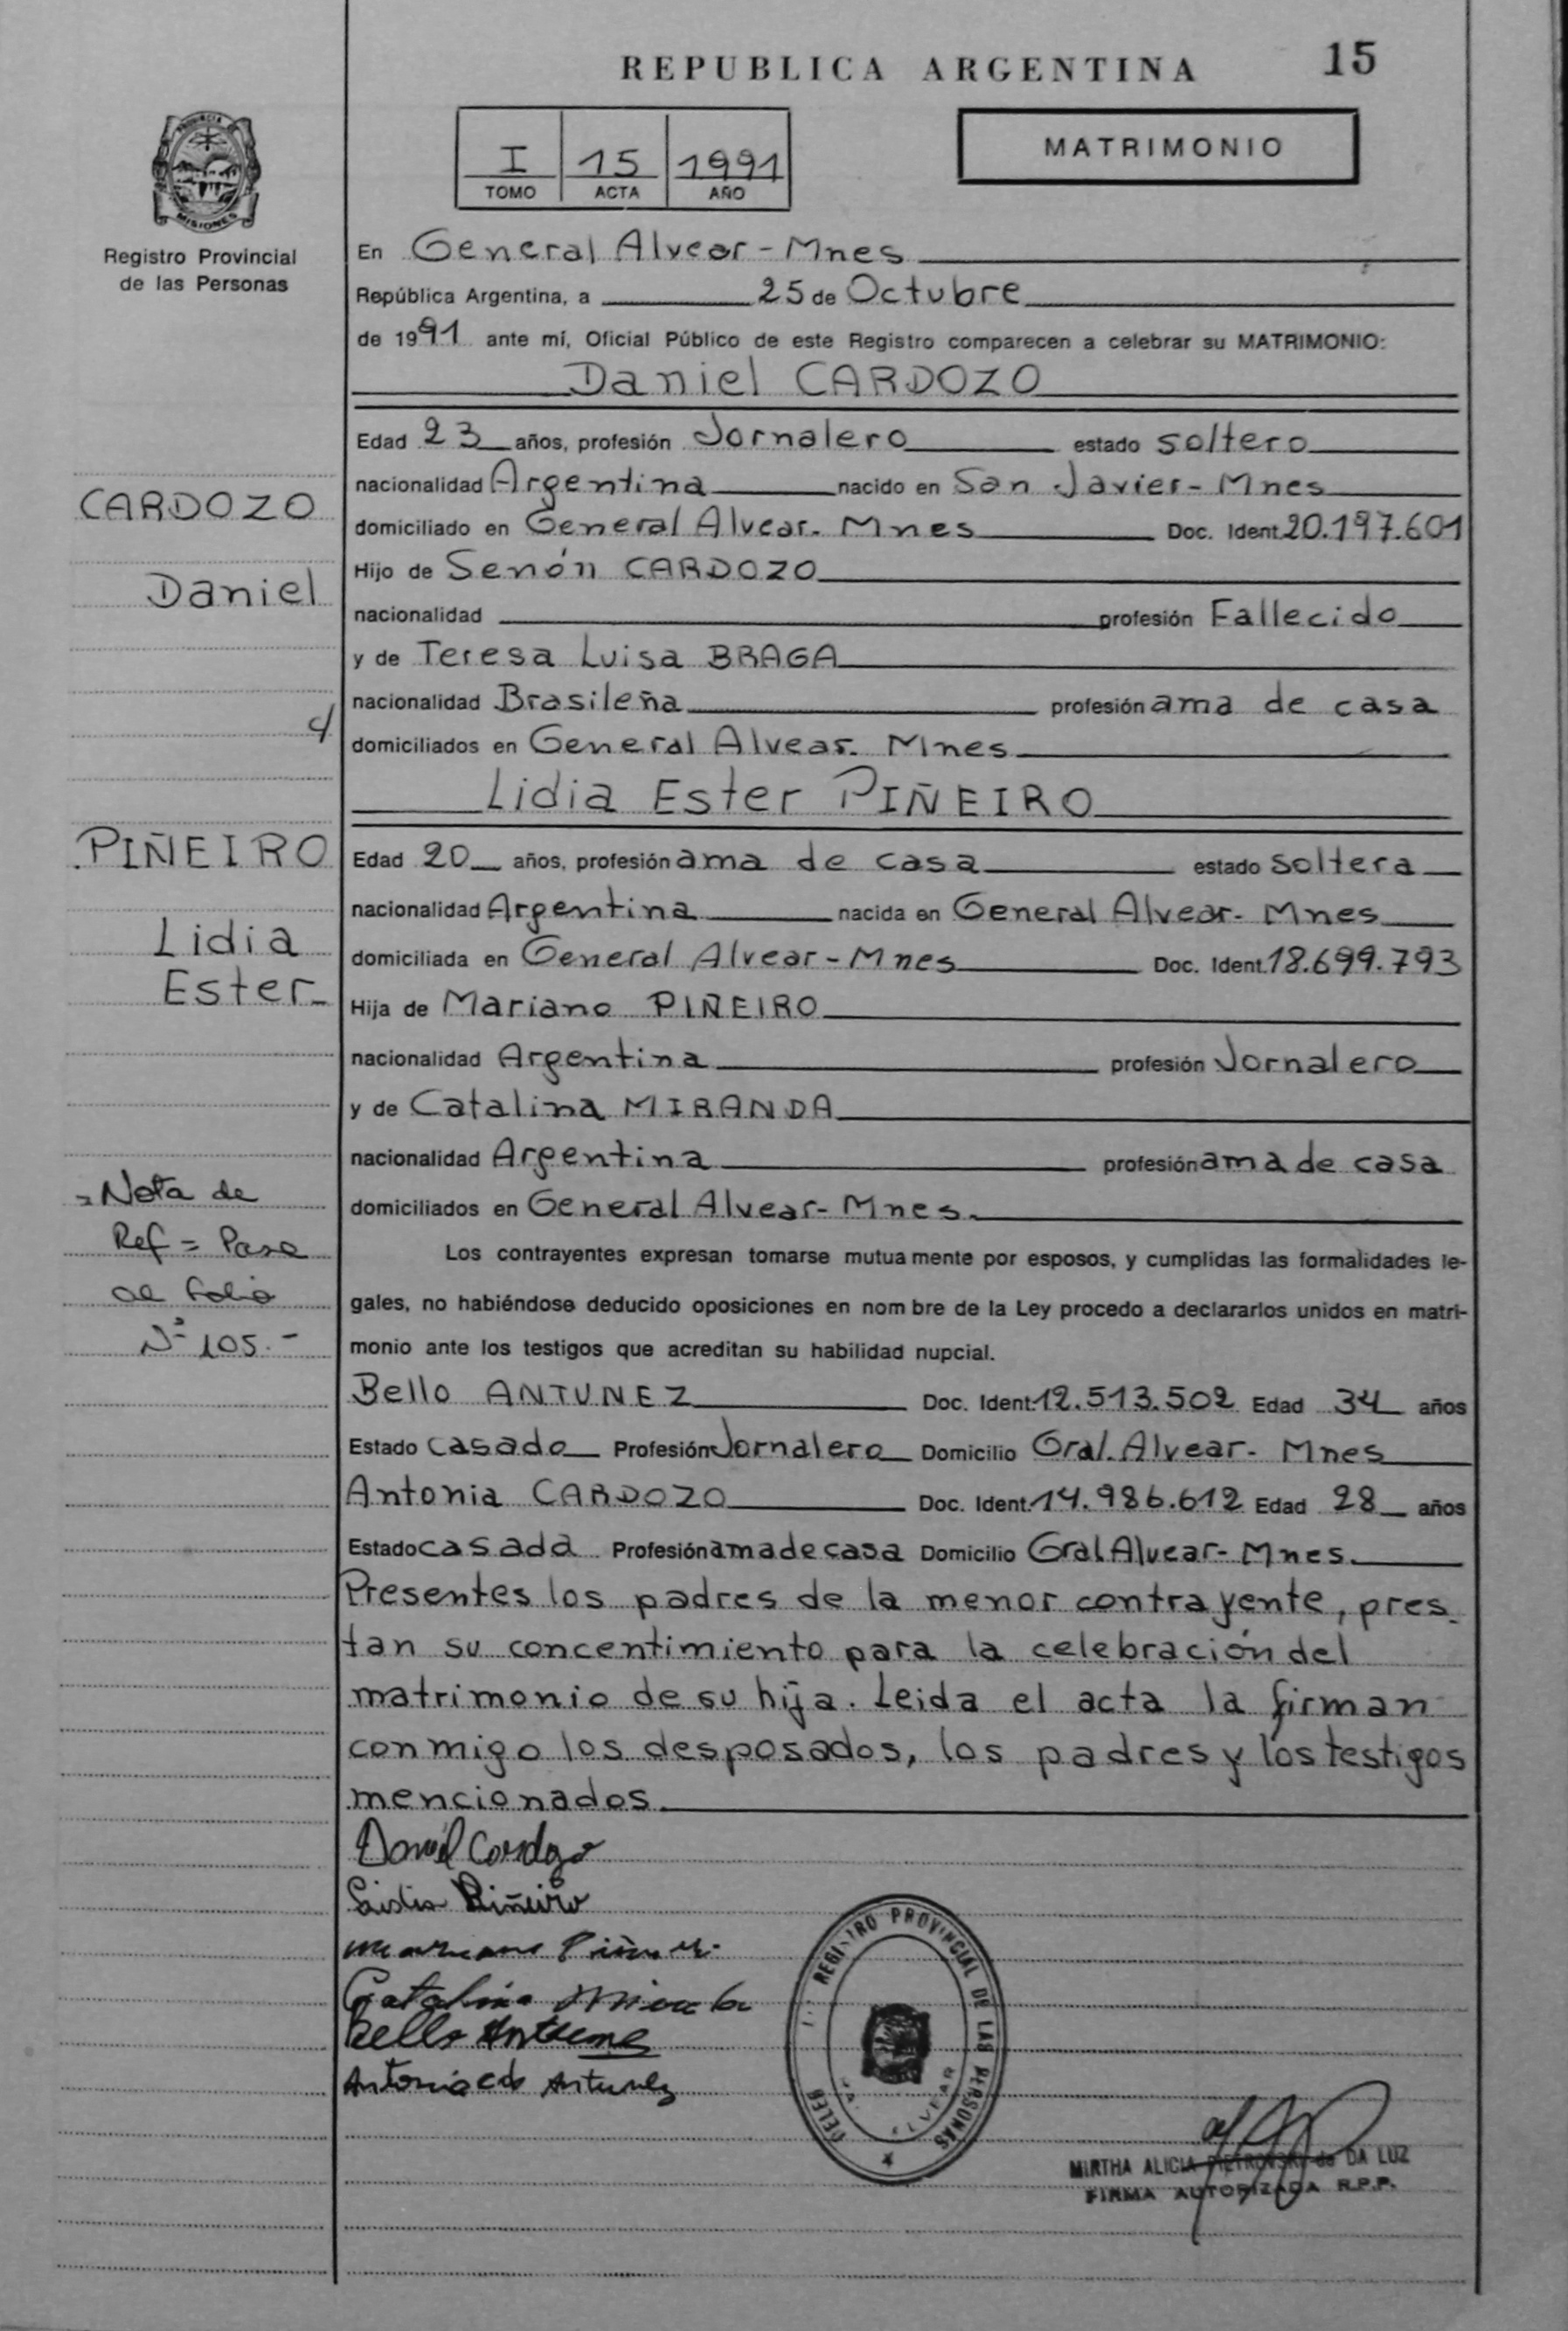 REPUBLICA ARGENTINA
15
PROVINCIA DE
MISIONES
Registro Provincial
de las Personas
I 15 1991
TOMO ACTA AÑO
MATRIMONIO
En General Alvear - Mnes
República Argentina, a 25 de Octubre
de 1991 ante mí, Oficial Público de este Registro comparecen a celebrar su MATRIMONIO:
Daniel CARDOZO
Edad 23 años, profesión Jornalero estado soltero
nacionalidad Argentina nacido en San Javier - Mnes
domiciliado en General Alvear. Mnes Doc. Ident. 20.197.601
Hijo de Senón CARDOZO
nacionalidad profesión Fallecido
y de Teresa Luisa BRAGA
nacionalidad Brasileña profesión ama de casa
domiciliados en General Alvear. Mnes
Lidia Ester PIÑEIRO
Edad 20 años, profesión ama de casa estado soltera
nacionalidad Argentina nacida en General Alvear - Mnes
domiciliada en General Alvear - Mnes Doc. Ident. 18.699.793
Hija de Mariano PIÑEIRO
nacionalidad Argentina profesión Jornalero
y de Catalina MIRANDA
nacionalidad Argentina profesión ama de casa
domiciliados en General Alvear - Mnes.
Los contrayentes expresan tomarse mutuamente por esposos, y cumplidas las formalidades le-
gales, no habiéndose deducido oposiciones en nombre de la Ley procedo a declararlos unidos en matri-
monio ante los testigos que acreditan su habilidad nupcial.
Bello ANTUNEZ Doc. Ident. 12.513.502 Edad 34 años
Estado casado Profesión Jornalero Domicilio Gral. Alvear - Mnes
Antonia CARDOZO Doc. Ident. 14.986.612 Edad 28 años
Estado casada Profesión ama de casa Domicilio Gral. Alvear - Mnes.
Presentes los padres de la menor contrayente, pres-
tan su concentimiento para la celebración del
matrimonio de su hija. Leida el acta la firman
conmigo los desposados, los padres y los testigos
mencionados.
CARDOZO
Daniel
c/
PIÑEIRO
Lidia
Ester
= Nota de
Ref = Pasa
al folio
Nº 105.-
Daniel Cardozo
Lidia Piñeiro
Mariano Piñeiro
Catalina Miranda
Bello Antunez
Antonia C de Antunez
REGISTRO PROVINCIAL DE LAS PERSONAS
ALVEAR
MIRTHA ALICIA PIETROWSKI de DA LUZ
FIRMA AUTORIZADA R.P.P.